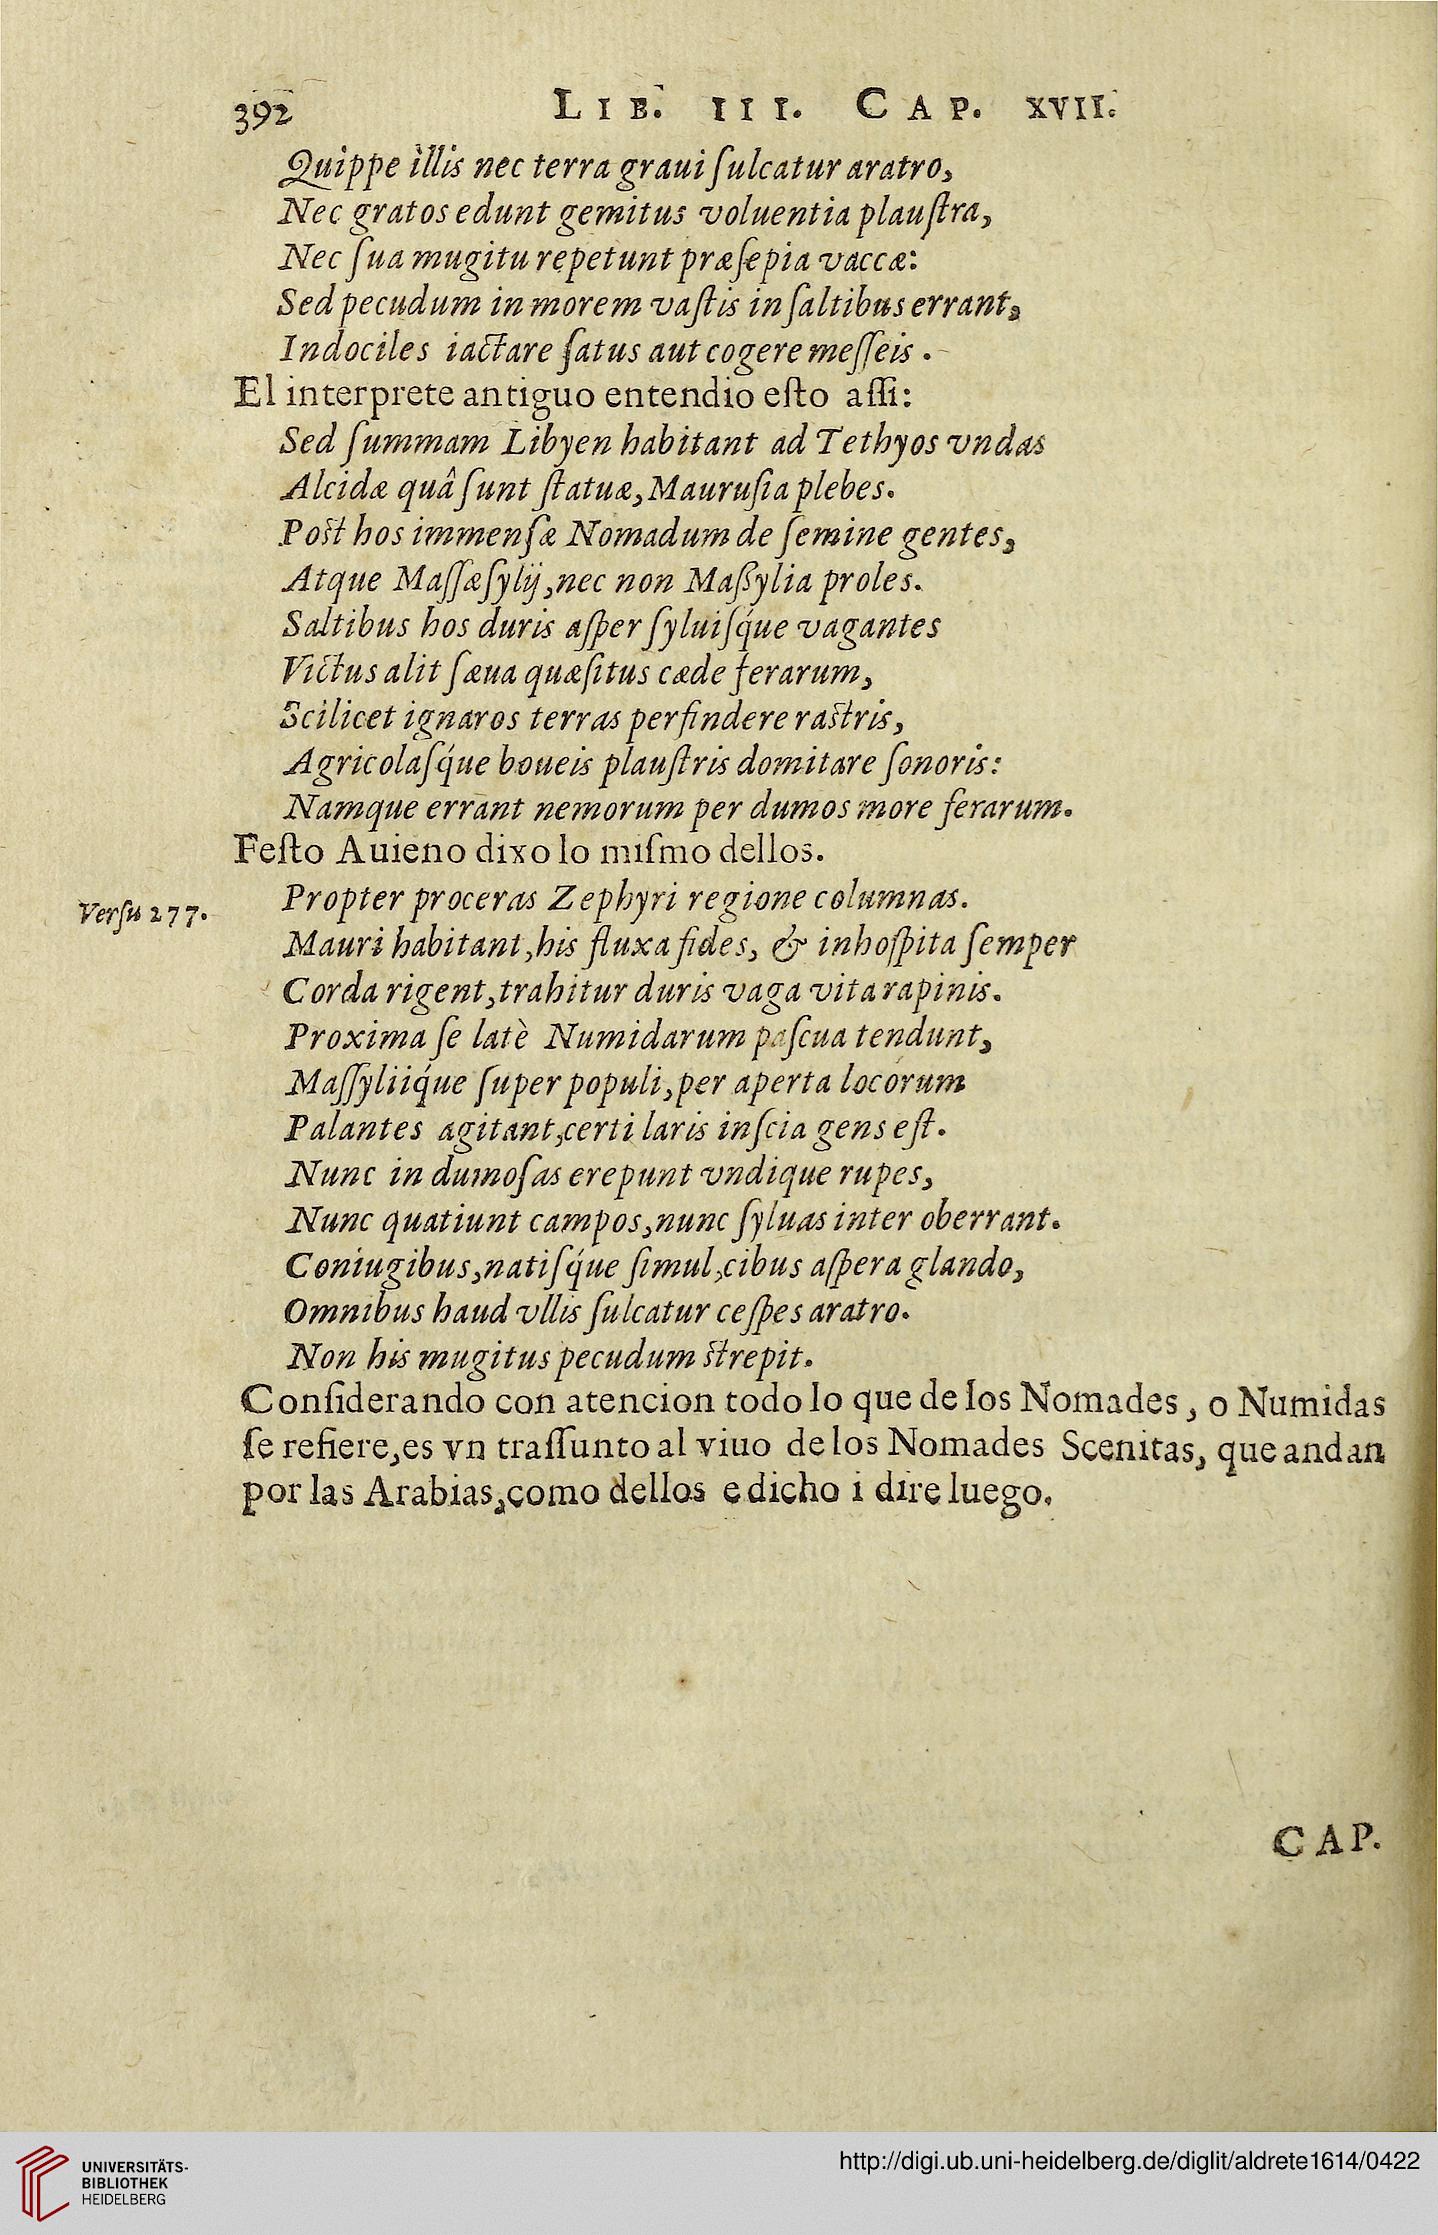 392 LIB. III. CAP. XVII.
Quippe illis nec terra graui ſulcatur aratro,
Nec gratos edunt gemitus voluentia plauſtra,
Nec ſua mugitu repetunt præſepia vaccæ:
Sed pecudum in morem vaſtis in ſaltibus errant,
Indociles iactare ſatus aut cogere meſſeis.
El interprete antiguo entendio eſto aſſi:
Sed ſummam Libyen habitant ad Tethyos vndas
Alcidæ quâ ſunt ſtatuæ, Mauruſia plebes.
Poſt hos immenſæ Nomadum de ſemine gentes,
Atque Maſſæſylij, nec non Maßylia proles.
Saltibus hos duris aſper ſyluiſq́ue vagantes
Victus alit ſæua quæſitus cæde ferarum,
Scilicet ignaros terras perfindere raſtris,
Agricolaſq́ue boueis plauſtris domitare ſonoris:
Namque errant nemorum per dumos more ferarum.
Feſto Auieno dixo lo miſmo dellos.
Verſu 277.
Propter proceras Zephyri regione columnas.
Mauri habitant, his fluxa fides, & inhoſpita ſemper
Corda rigent, trahitur duris vaga vita rapinis.
Proxima ſe latè Numidarum paſcua tendunt,
Maſſyliiq́ue ſuper populi, per aperta locorum
Palantes agitant, certi laris inſcia gens eſt.
Nunc in dumoſas erepunt vndique rupes,
Nunc quatiunt campos, nunc ſyluas inter oberrant.
Coniugibus, natiſq́ue ſimul, cibus aſpera glando,
Omnibus haud vllis ſulcatur ceſpes aratro.
Non his mugitus pecudum ſtrepit.
Conſiderando con atencion todo lo que de los Nomades, o Numidas
ſe refiere, es vn traſſunto al viuo de los Nomades Scenitas, que andan
por las Arabias, como dellos e dicho i dire luego.
CAP.
UNIVERSITÄTS-
BIBLIOTHEK
HEIDELBERG
http://digi.ub.uni-heidelberg.de/diglit/aldrete1614/0422